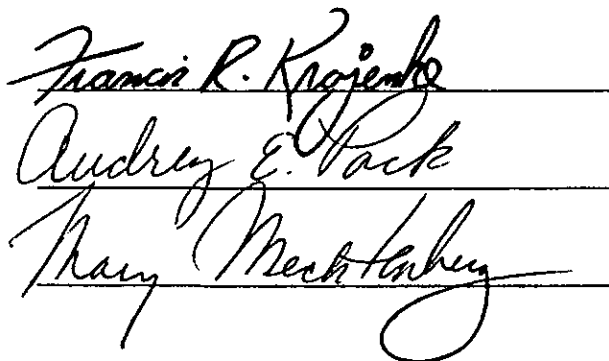 Francis R. Krojenke
Audrey E. Pack
Mary Mechtenberg